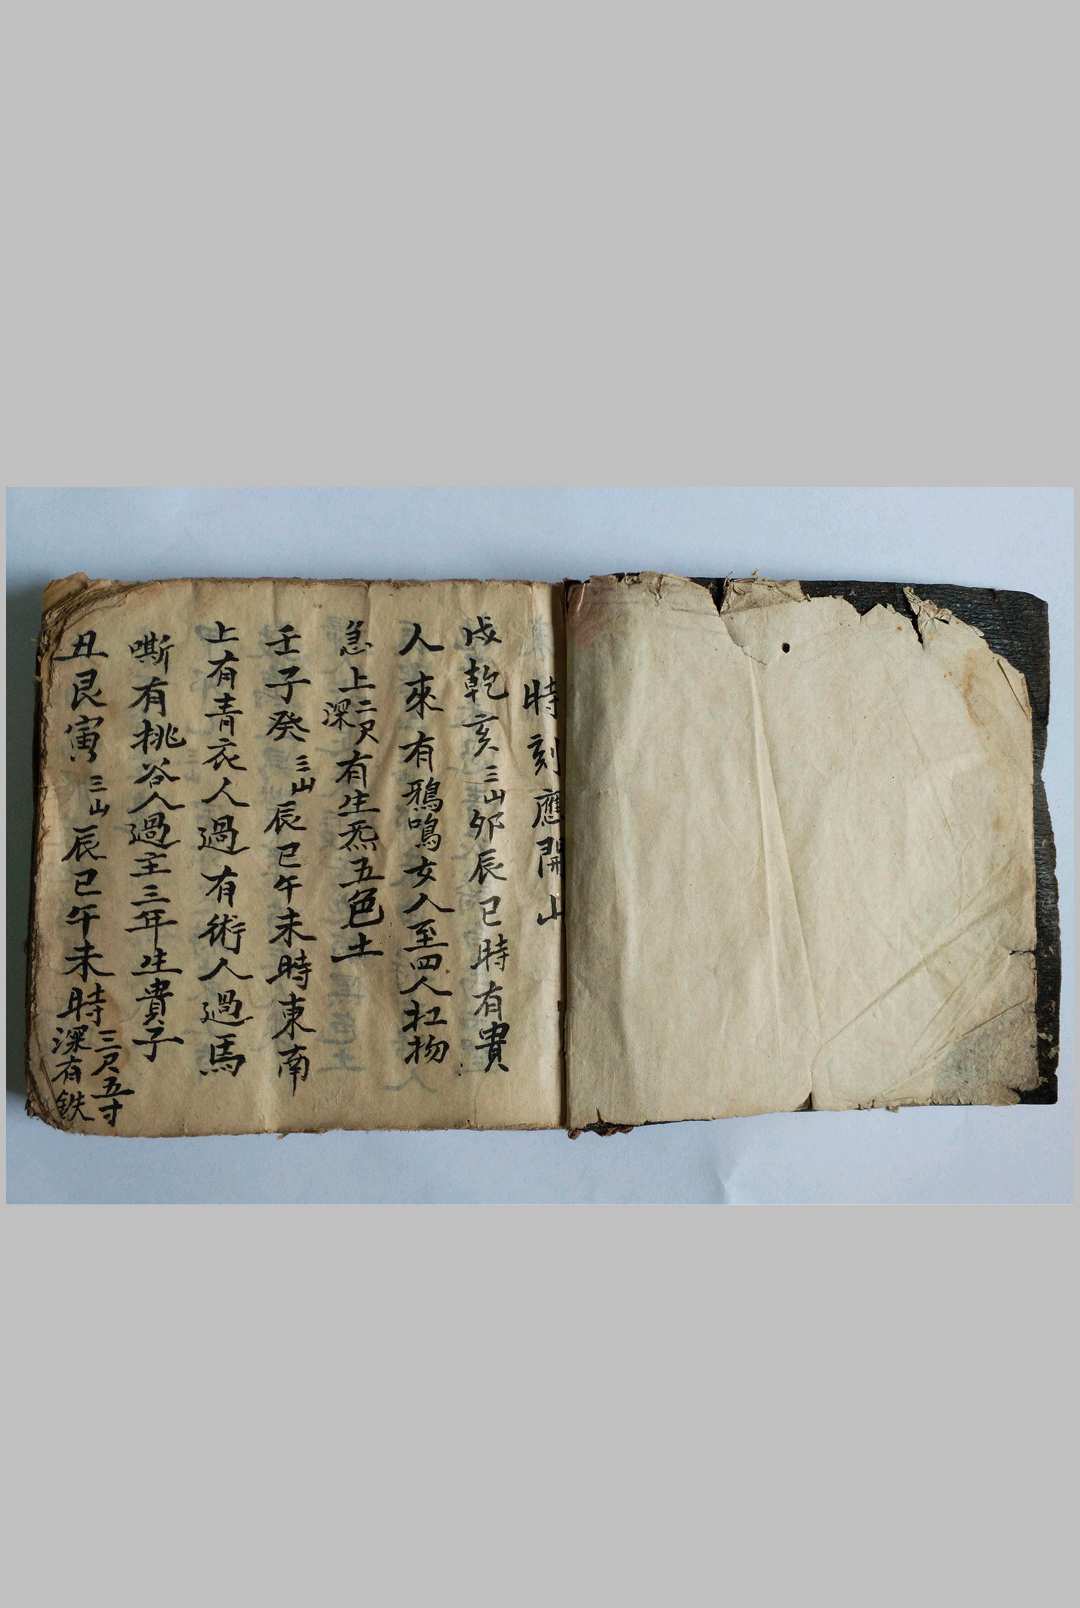 時刻應開山
戌乾亥三山卯辰巳時有貴
人來有鴉鳴女人至四人扛物
急上深二尺有生炁五色土
壬子癸三山辰巳午未時東南
上有青衣人過有術人過馬
嘶有挑谷人過主三年生貴子
丑艮寅三山辰巳午未時三尺五寸深有鉄